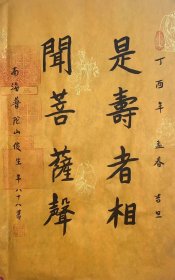 丁酉年 孟春 吉旦
是壽者相
聞菩薩聲
南海普陀山俊生 年八十八書